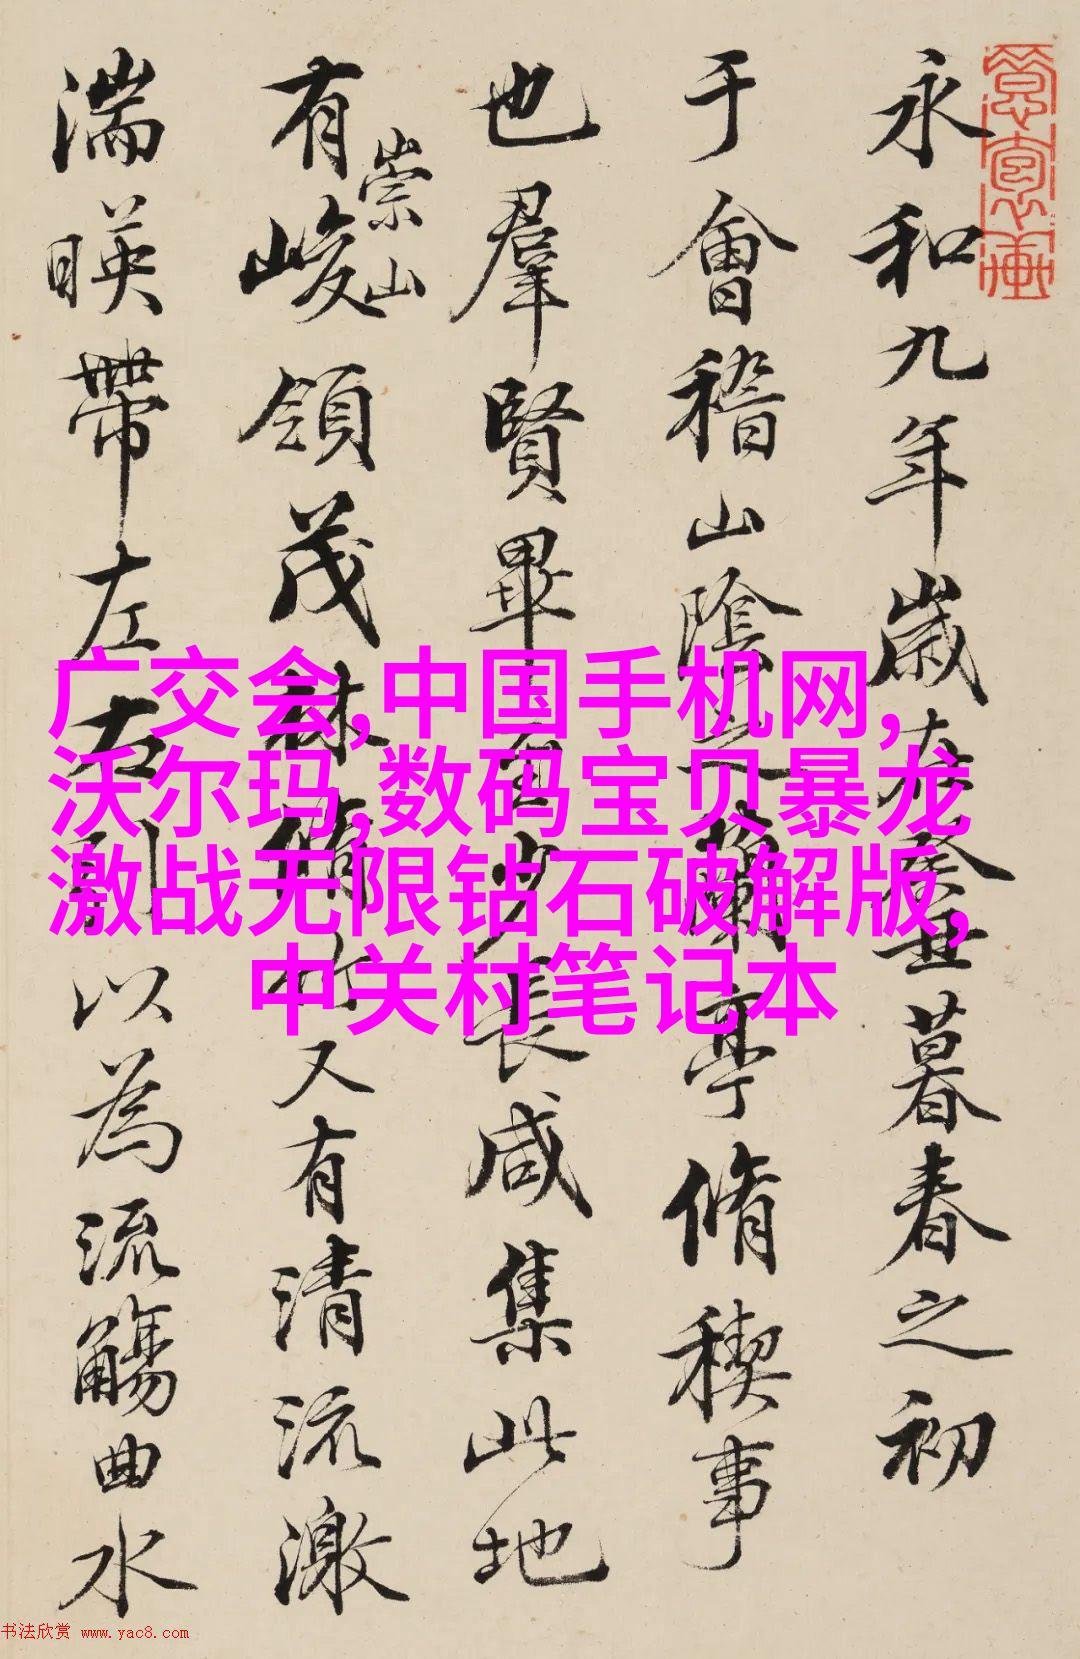 永和九年歲在癸丑暮春之初
于會稽山陰之蘭亭脩稧事
也羣賢畢至少長咸集此地
有崇山峻領茂林脩竹又有清流激
湍暎帶左右引以為流觴曲水
广交会,中国手机网,
沃尔玛,数码宝贝暴龙
激战无限钻石破解版,
中关村笔记本
书法欣赏 www.yac8.com